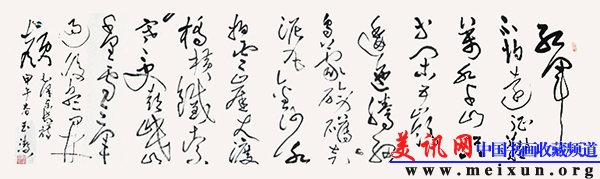 红军
不怕远征难
万水千山只
等闲五岭
逶迤腾细
浪乌蒙磅礴走
泥丸金沙水
拍云崖暖大渡
桥横铁索
寒更喜岷山
千里雪三军
过后尽开
颜
甲午春玉
美讯网
中国书画收藏频道
www.meixun.org